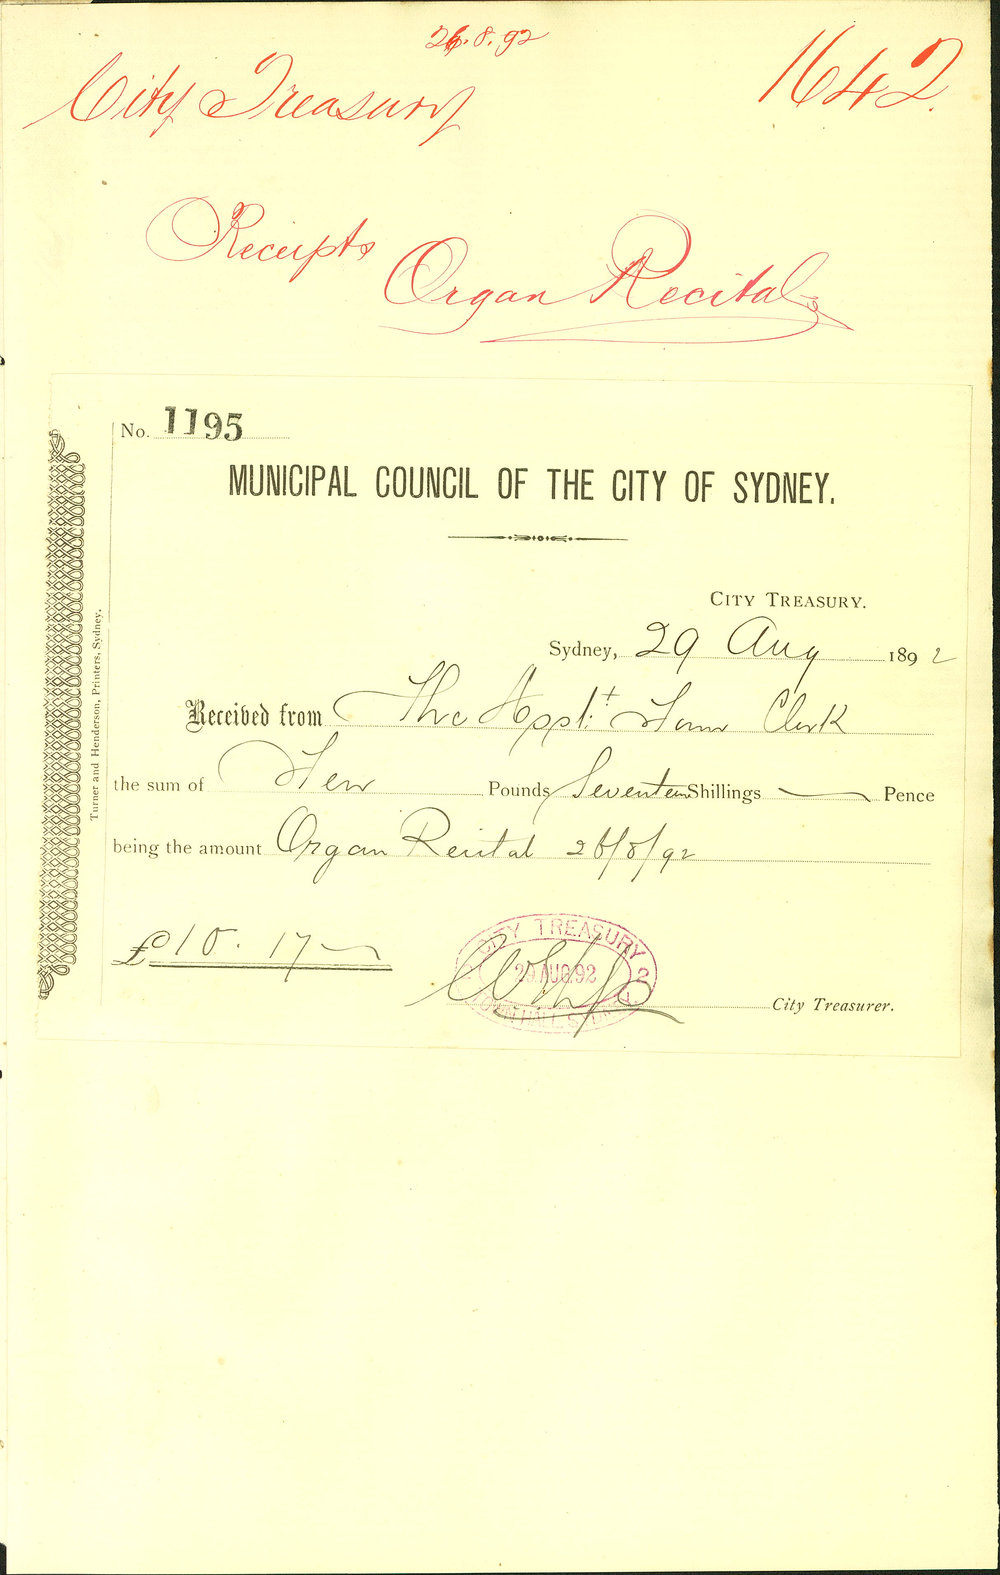 26.8.92
City Treasury
1642.
Receipts
Organ Recital
No. 1195
MUNICIPAL COUNCIL OF THE CITY OF SYDNEY.
CITY TREASURY.
Sydney, 29 Aug 1892
Received from The Asst. Town Clerk
the sum of Ten Pounds Seventeen Shillings — Pence
being the amount Organ Recital 26/8/92
£10. 17 —
CITY TREASURY
29 AUG. 92
TOWN HALL SYDNEY
City Treasurer.
Turner and Henderson, Printers, Sydney.